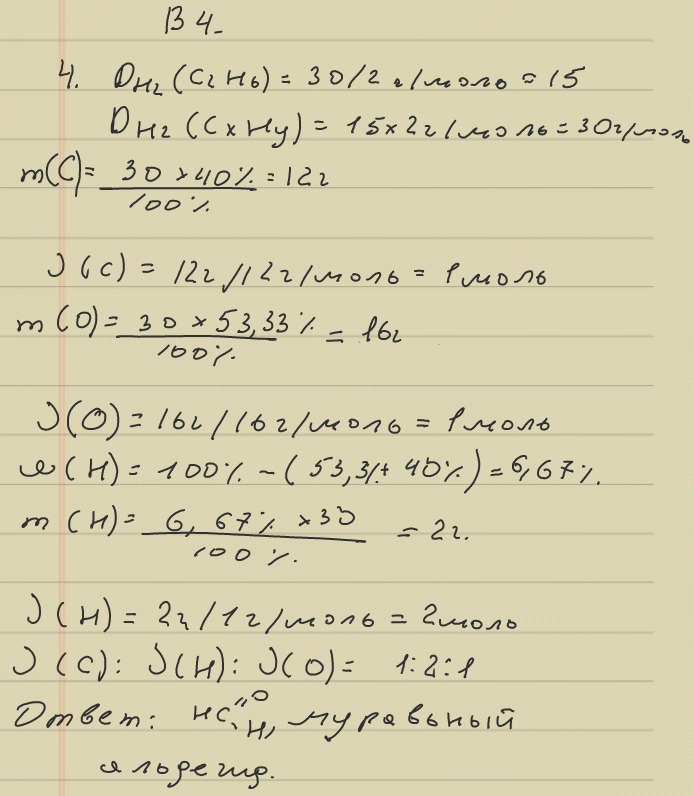 В 4.
4. D_H₂ (C₂H₆) = 30/2 г/моль = 15
D_H₂ (CxHy) = 15×2г/моль = 30г/моль
m(C) = 30 × 40% / 100% = 12г
ν(C) = 12г/12г/моль = 1моль
m(O) = 30 × 53,33% / 100% = 16г
ν(O) = 16г/16г/моль = 1моль
ω(H) = 100% - (53,3%+ 40%) = 6,67%.
m(H) = 6,67% × 30 / 100% = 2г.
ν(H) = 2г/1г/моль = 2моль
ν(C): ν(H): ν(O) = 1:2:1
Ответ: HC=O H, муравьный
альдегид.